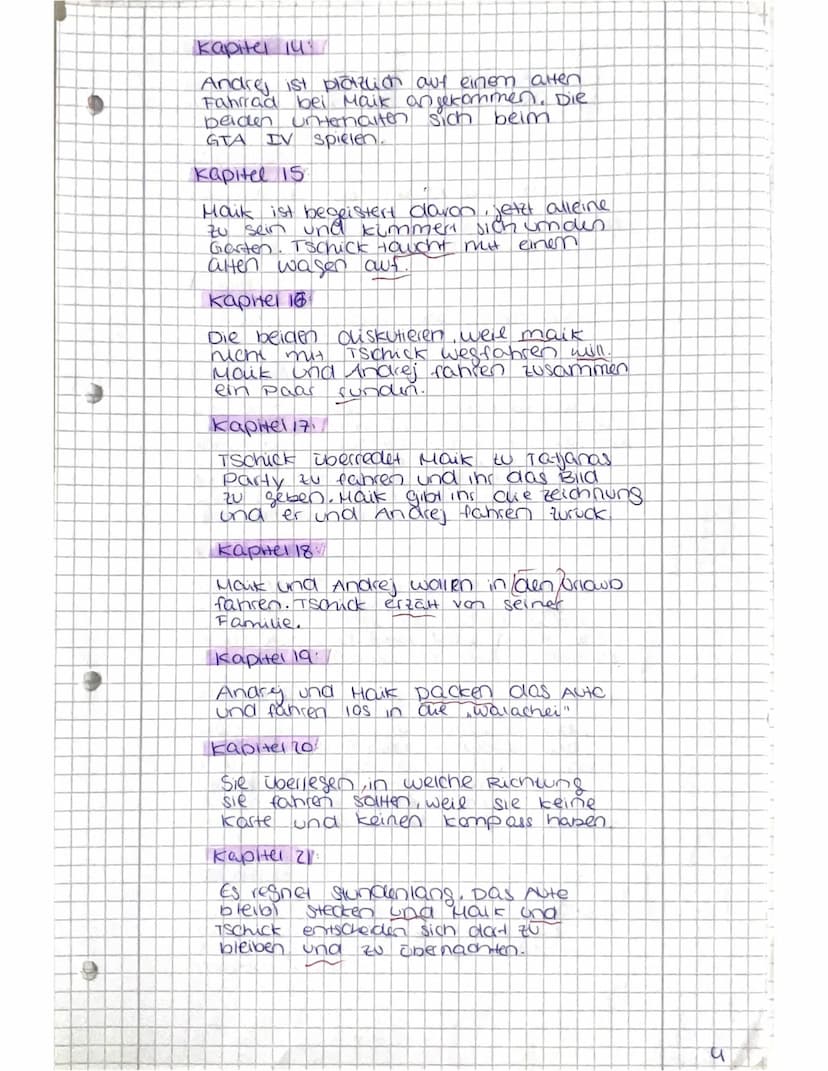 Kapitel 14:
Andrej ist plötzlich auf einem alten
Fahrrad bei Maik angekommen. Die
beiden unterhalten sich beim
GTA IV spielen.
Kapitel 15
Maik ist begeistert davon, jetzt alleine
zu sein und kümmert sich um den
Garten. Tschick taucht mit einem
alten wagen auf.
Kapitel 16
Die beiden diskutieren, weil maik
nicht mit Tschick wegfahren will.
Maik und Andrej fahren zusammen
ein paar sunden.
Kapitel 17:
Tschick überredet Maik zu Tatjanas
Party zu fahren und ihr das Bild
zu geben. Maik gibt ihr die zeichnung
und er und Andrej fahren zurück.
Kapitel 18:
Maik und Andrej wollen in den Urlaub
fahren. Tschick erzält von seiner
Familie.
Kapitel 19:
Andrej und Maik packen das Auto
und fahren los in die „Walachei"
Kapitel 20:
Sie überlegen, in welche Richtung
sie fahren sollten, weil sie keine
Karte und keinen Kompass haben.
Kapitel 21:
Es regnet stundenlang. Das Auto
bleibt stecken und Maik und
Tschick entscheiden sich dort zu
bleiben und zu übernachten.
4